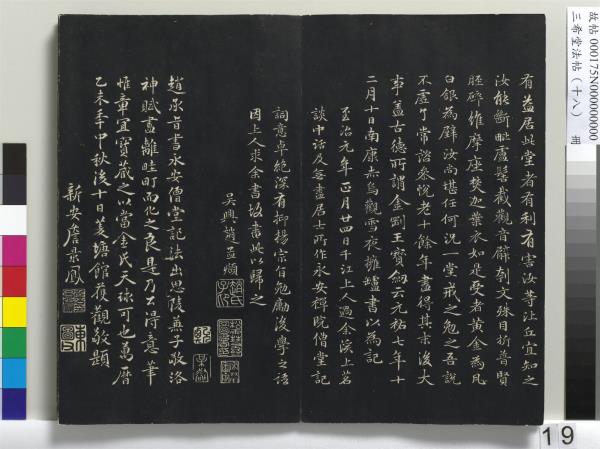 有益居此堂者有利有害汝等比丘宜知之
汝能斷毗盧髻截觀音臂刳文殊目折普賢
脛碎維摩座焚迦葉衣如是受者黃金為瓦
白銀為壁汝尚堪任何況一堂戒之勉之吾說
不虛了常諮參悅老十餘年盡得其末後大
事蓋古德所謂金剛王寶劔云元祐七年十
二月十日南康赤烏觀雪夜擁爐書以為記
至治元年正月廿四日千江上人過余溪上茗
談中話及無盡居士所作永安禪院僧堂記
詞意卓絶深有抑揚宗旨勉勵後學之語
因上人求余書故書此以歸之
吳興趙孟頫
趙承旨書永安僧堂記法出思陵兼子敬洛
神賦畫離畦町而化之良是乃公得意筆
惟章宜寶藏之以當金氏天球可也萬曆
乙未年中秋後十日菱塘館獲觀敬題
新安詹景鳳
趙氏子昂
故帖 000175N000000000
三希堂法帖（十八） 冊
19